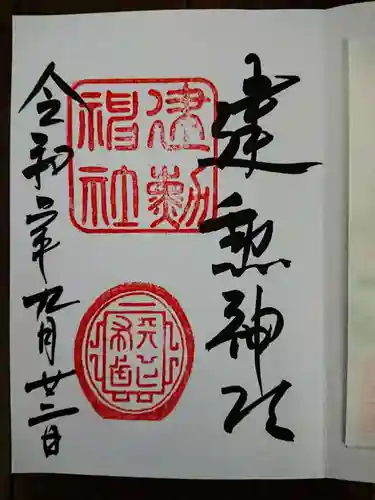 建勲神社
建勲
神社
天下布武
令和二年九月廿二日